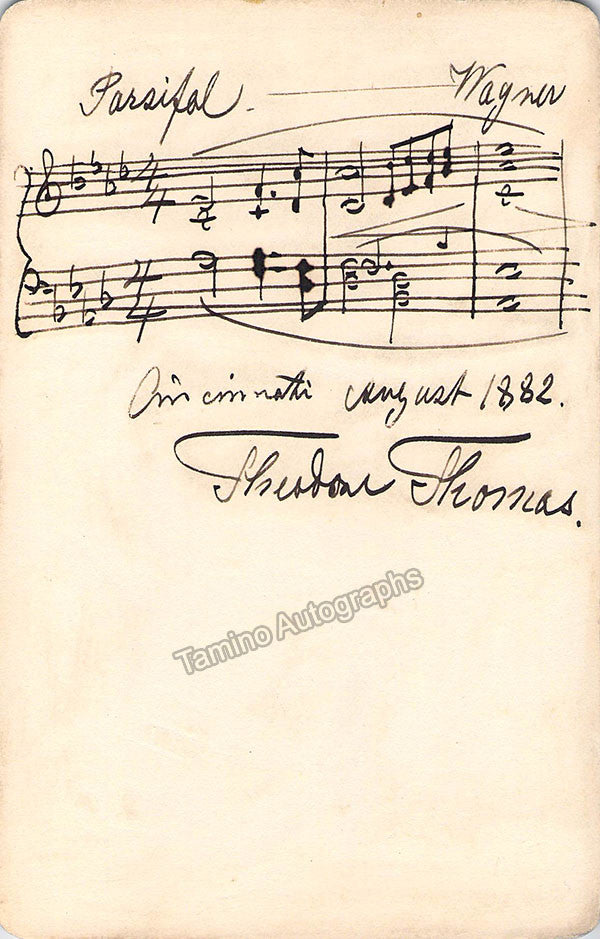 Parsifal. Wagner
Cincinnati August 1882.
Theodore Thomas.
Tamino Autographs